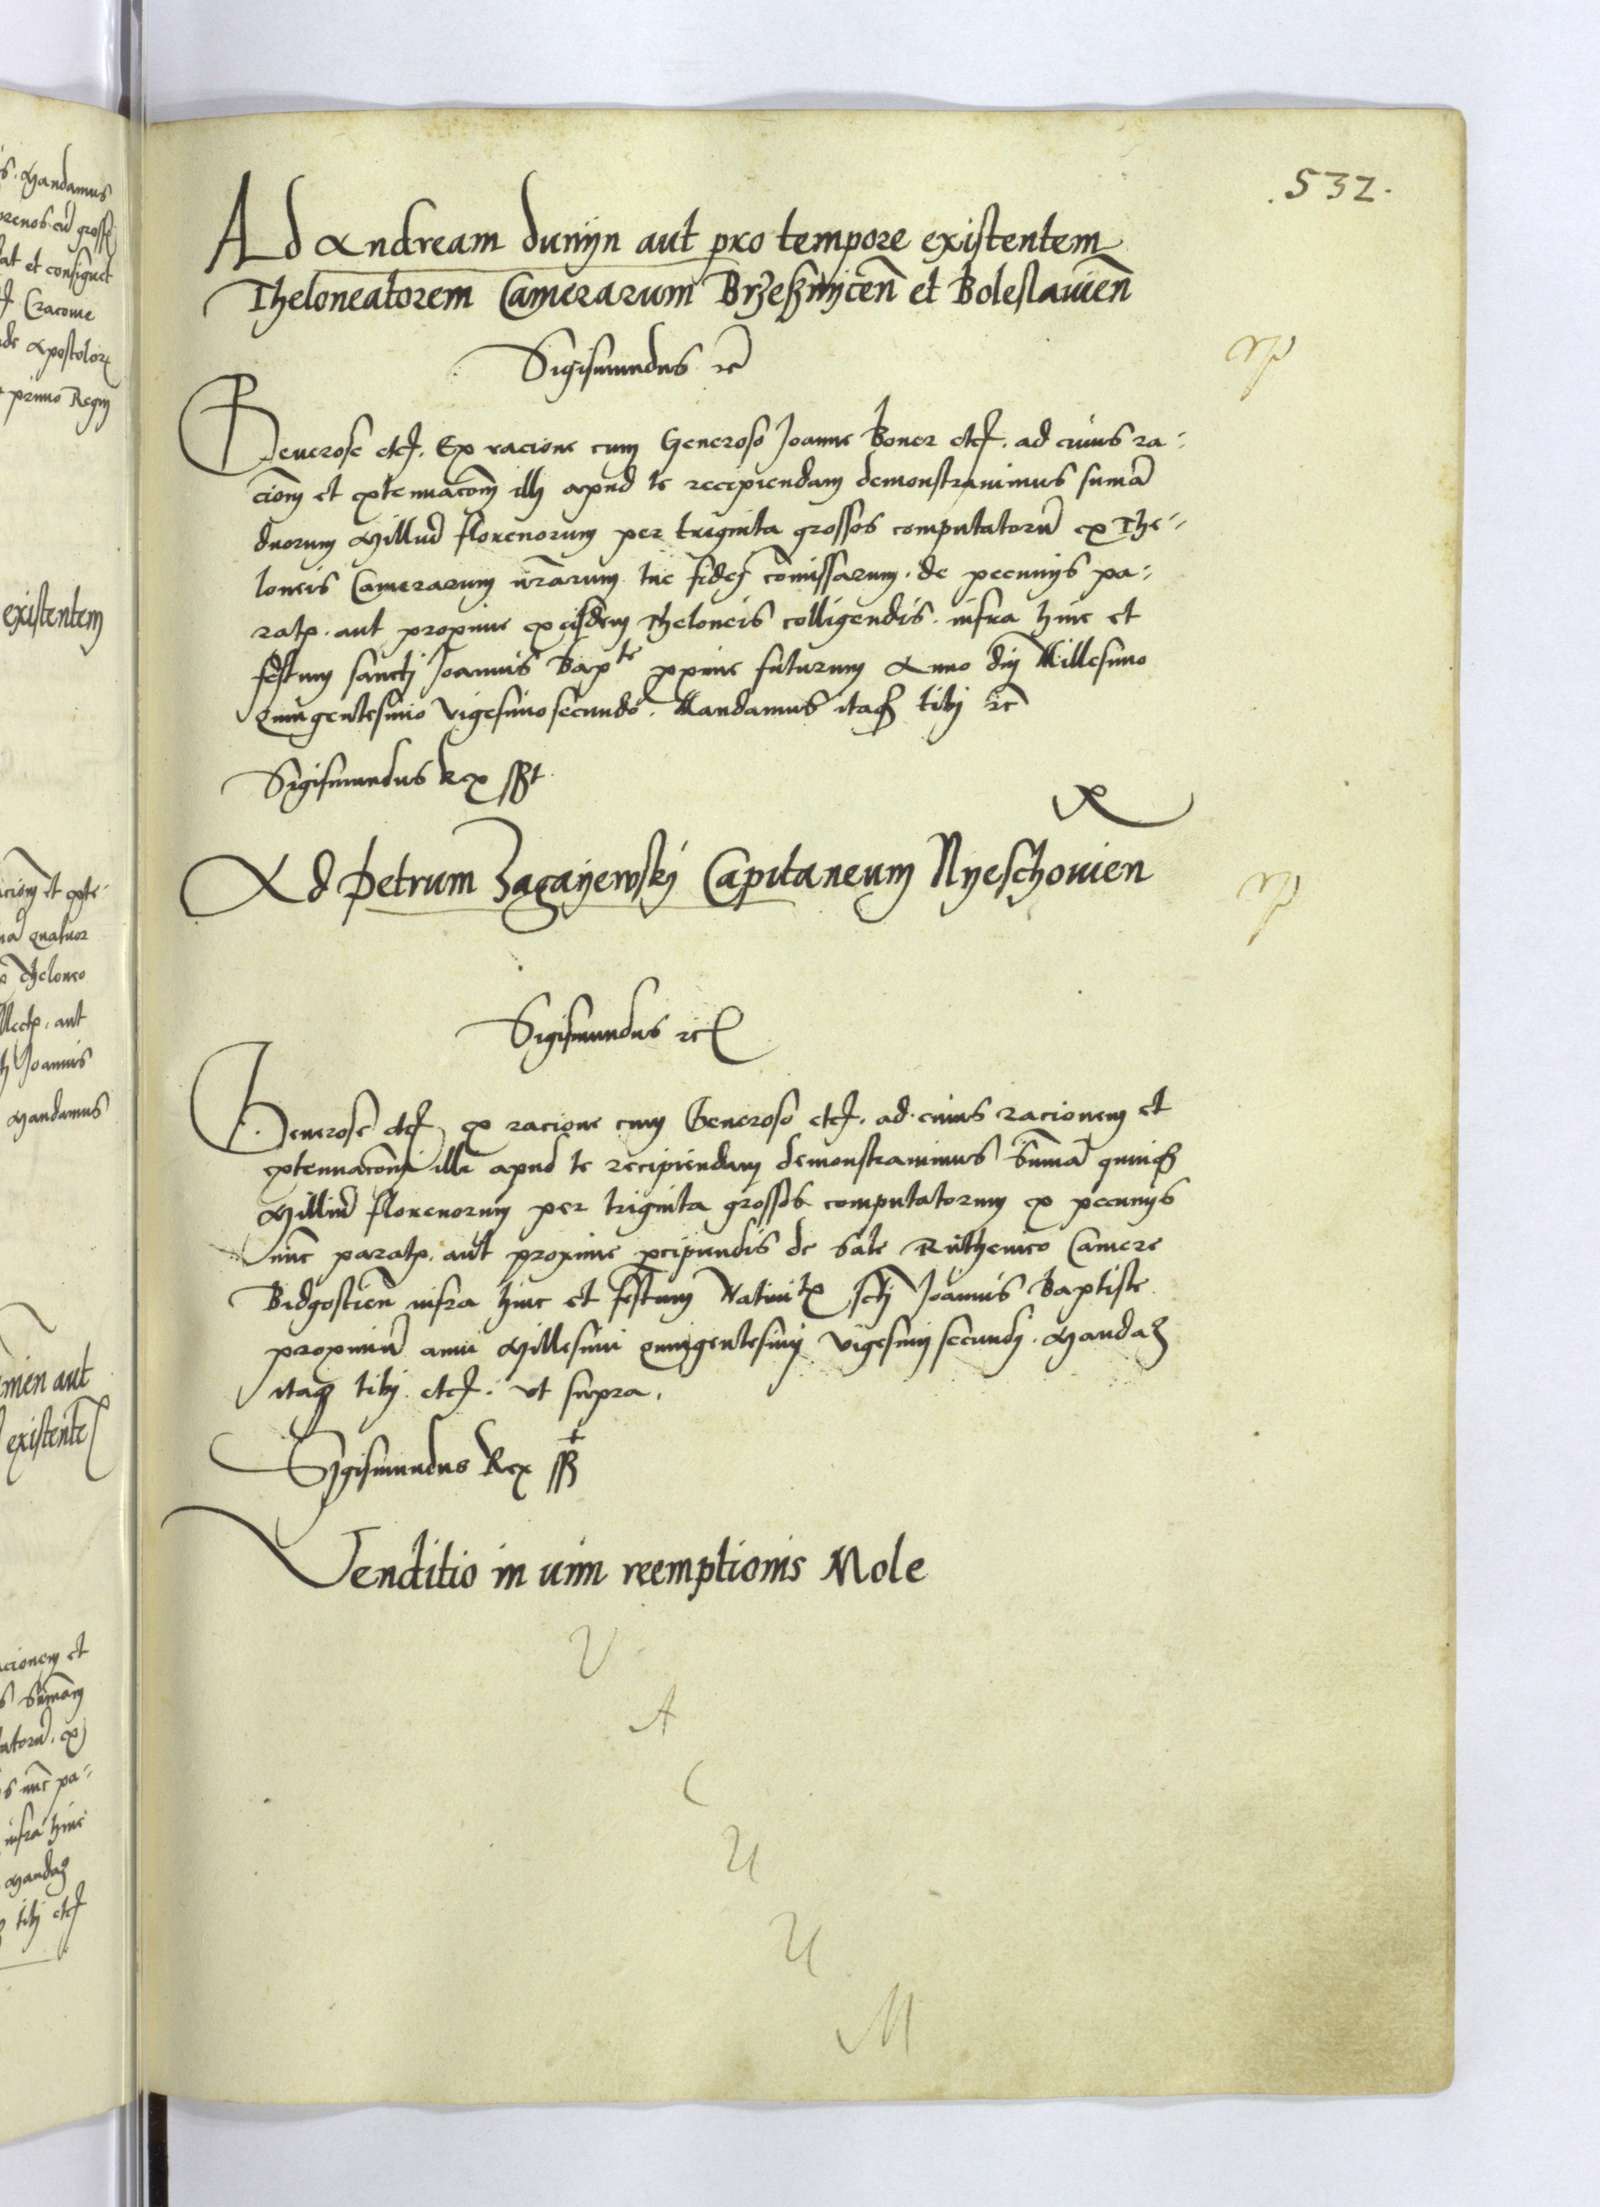 .532.
Ad Andream dunijn aut pro tempore existentem
Theloneatorem Camerarum Brzeznicen et Boleslauien
Sigismundus rc
Generose etc. Ex racione cum Generoso Joanne Boner etc. ad cuius ra-
ciom et extenuacom illi apud te recipiendam demonstrauimus sumā
duorum Milliū florenorum per triginta grossos computatorū ex The-
loneis Camerarum nrarum tue fidei comissarum. de pecunijs pa-
ratis. aut propius ex eisdem Theloneis colligendis. infra hinc et
festum sancti Joannis Bapte pxime futurum Anno dni Millesimo
quingentesimo vigesimo secundo. Mandamus itaqz tibi rc
Sigismundus Rex sst
Ad Petrum Zagayewskij Capitaneum Nyeschouien
Sigismundus rc
Generose etc ex racione cum Generoso etc. ad cuius racionem et
extenuacom illi apud te recipiendam demonstrauimus Sumā quinqz
Milliū florenorum per triginta grossos computatorum ex pecunijs
nunc paratis. aut proxime pcipiendis de Sale Ruthenico Camere
Bidgostien infra hinc et festum Natiuitis scti Joannis Baptiste
proximū anni Millesimi quingentesimi vigesimi secundi. Mandaz
itaqz tibi etc. vt supra.
Sigismundus Rex sst
Venditio in uim reemptionis Mole
V
A
C
U
U
M